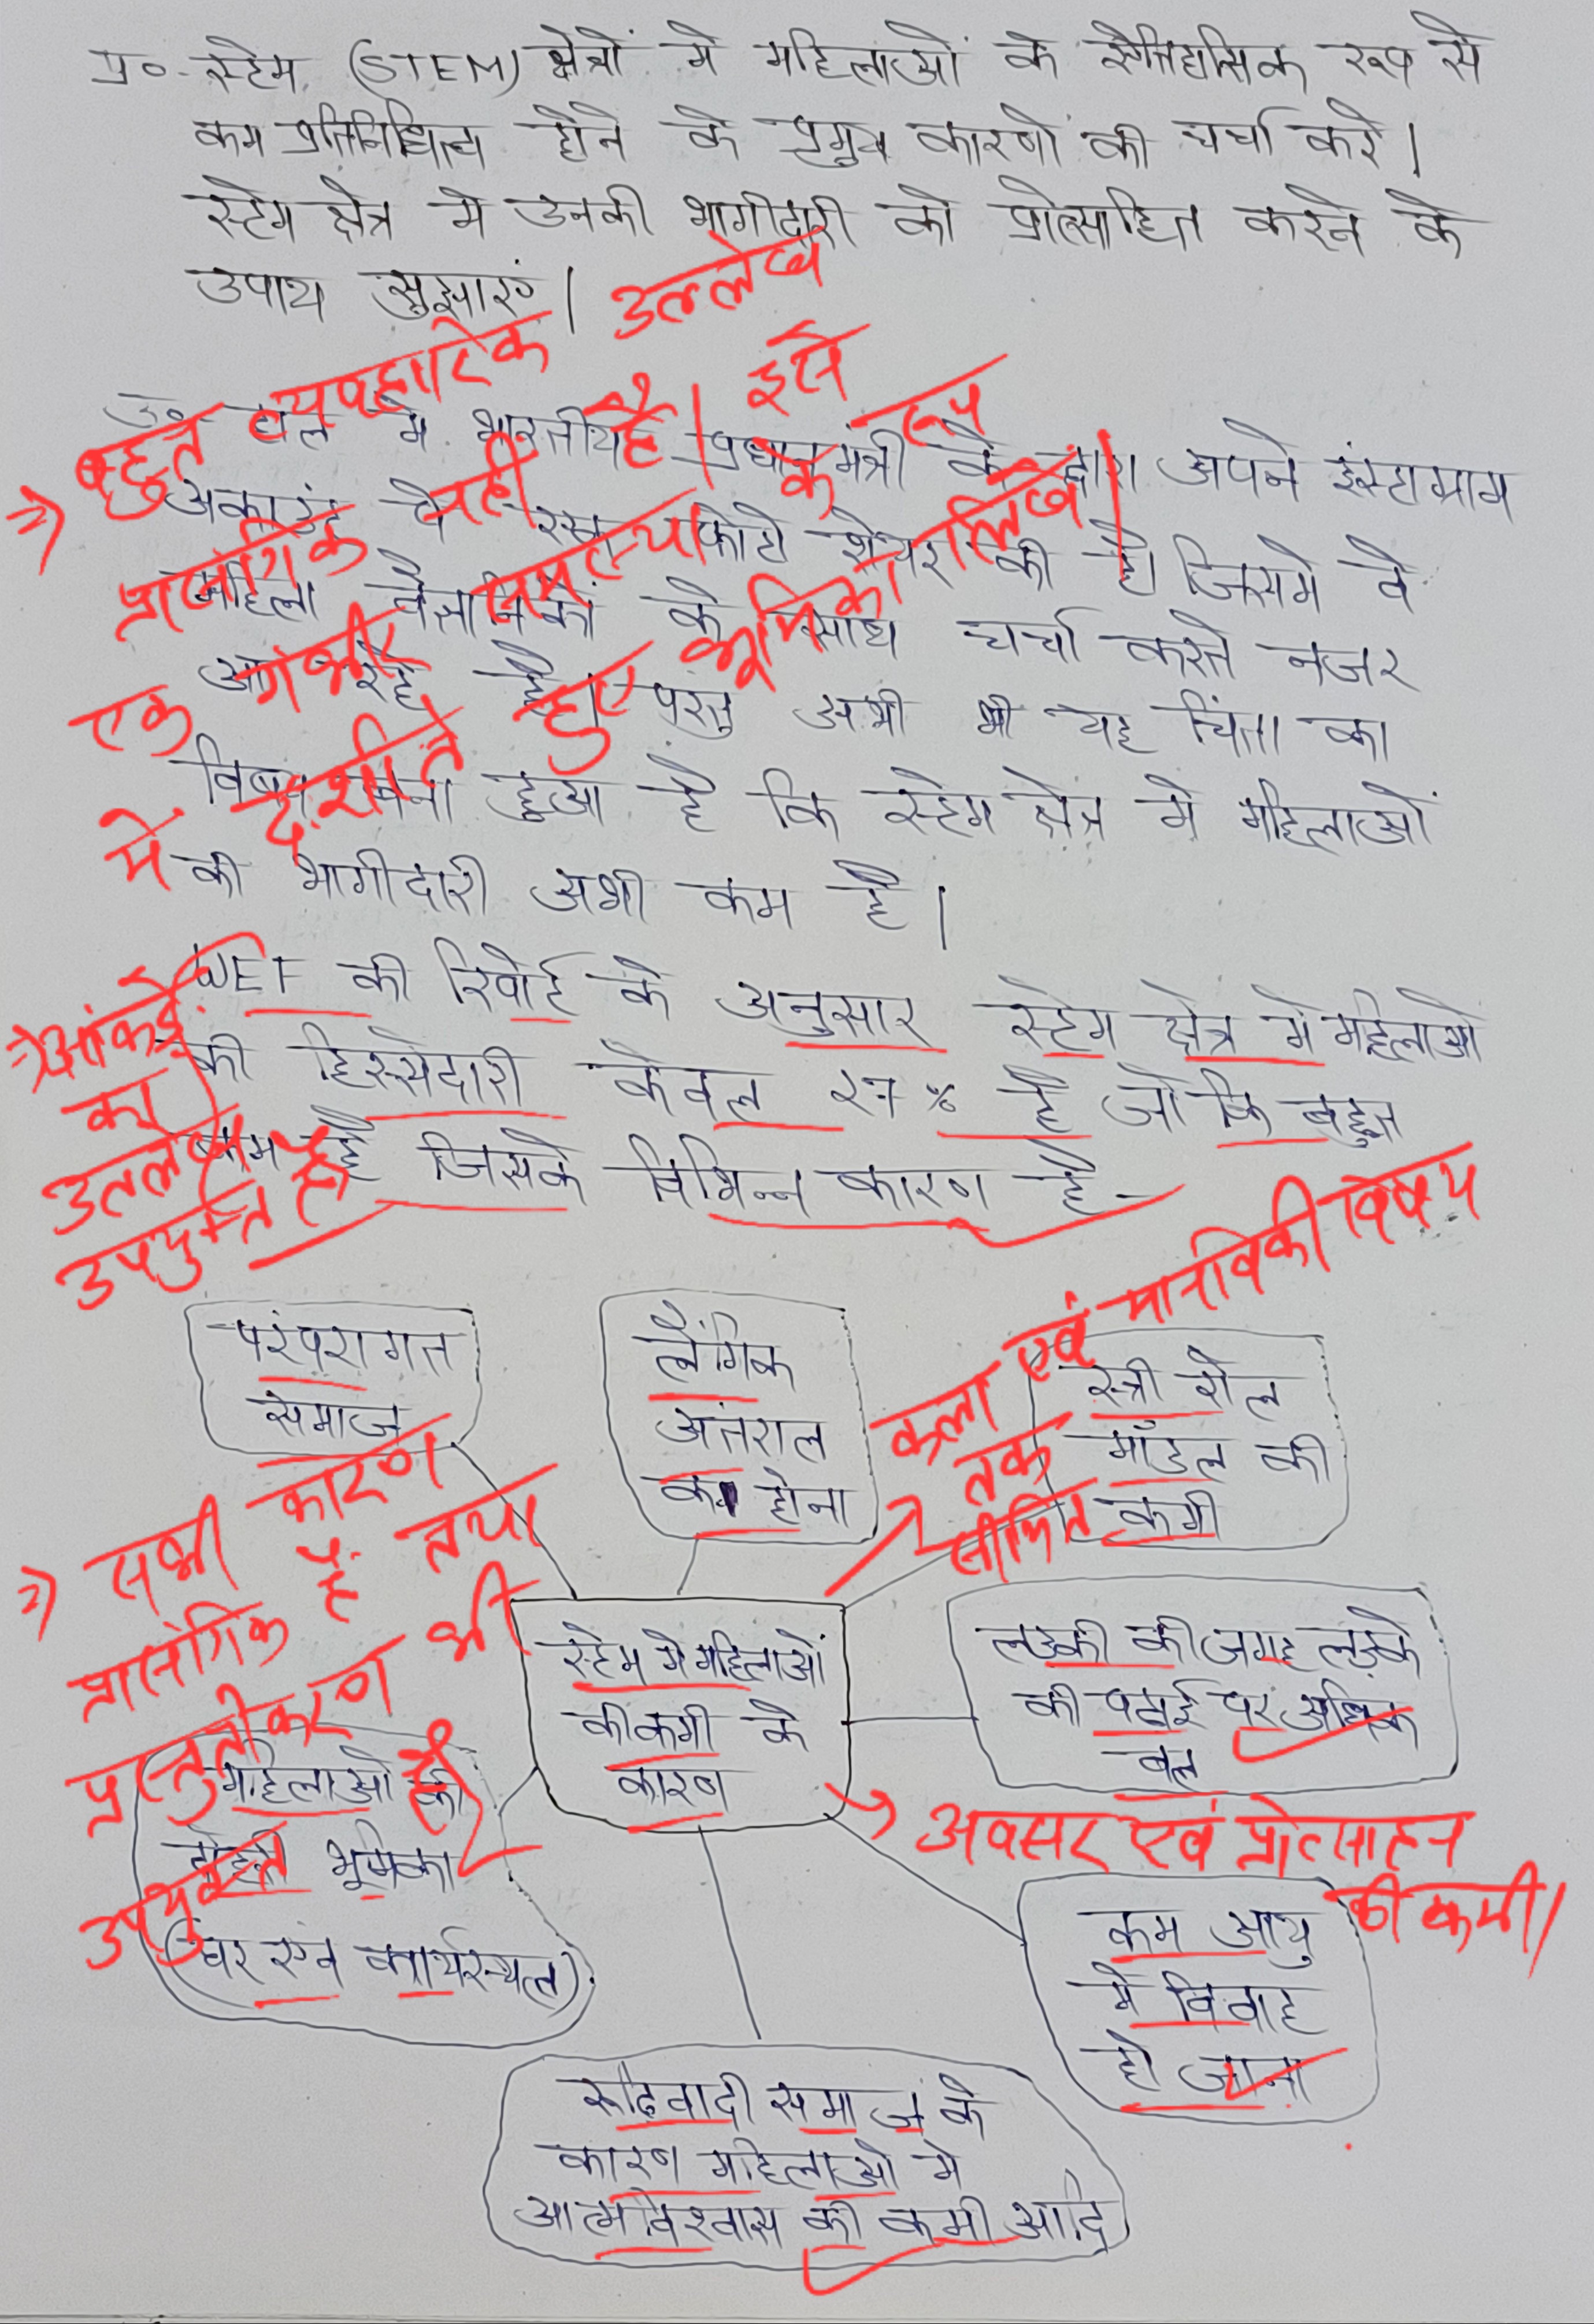 प्र०- स्टेम (STEM) क्षेत्रों में महिलाओं के ऐतिहासिक रूप से
कम प्रतिनिधित्व होने के प्रमुख कारणों की चर्चा करें।
स्टेम क्षेत्र में उनकी भागीदारी को प्रोत्साहित करने के
उपाय सुझाएं।
उ० हाल में भारतीय प्रधानमंत्री के द्वारा अपने इंस्टाग्राम
अकाउंट पे एक फोटो शेयर की है। जिसमे वे
महिला वैज्ञानिकों के साथ चर्चा करते नजर
आ रहे हैं। परंतु अभी भी यह चिंता का
विषय बना हुआ है कि स्टेम क्षेत्र मे महिलाओं
की भागीदारी अभी कम है।
⇒ बहुत व्यवहारिक उल्लेख
प्रासंगिक नही है। इसे
एक गंभीर समस्या के रूप
में दर्शाते हुए भूमिका लिखें।
WEF की रिपोर्ट के अनुसार स्टेम क्षेत्र मे महिलाओ
की हिस्सेदारी केवल 27% है जो कि बहुत
कम है जिसके विभिन्न कारण है-
⇒ आंकड़े
का
उल्लेख
उपयुक्त है।
परंपरागत
समाज
लैंगिक
अंतराल
का होना
स्त्री रोल
मॉडल की
कमी
कला एवं मानविकी विषय
तक
सीमित
स्टेम मे महिलाओं
की कमी के
कारण
लड़की की जगह लड़के
की पढाई पर अधिक
बल
⇒ सभी कारण
प्रासंगिक हैं तथा
प्रस्तुतीकरण भी
उपयुक्त है।
महिलाओ की
दोहरी भूमिका
(घर एंव कार्यस्थल)
→ अवसर एवं प्रोत्साहन
की कमी।
कम आयु
मे विवाह
हो जाना
रूढिवादी समाज के
कारण महिलाओ मे
आत्मविश्वास की कमी आदि